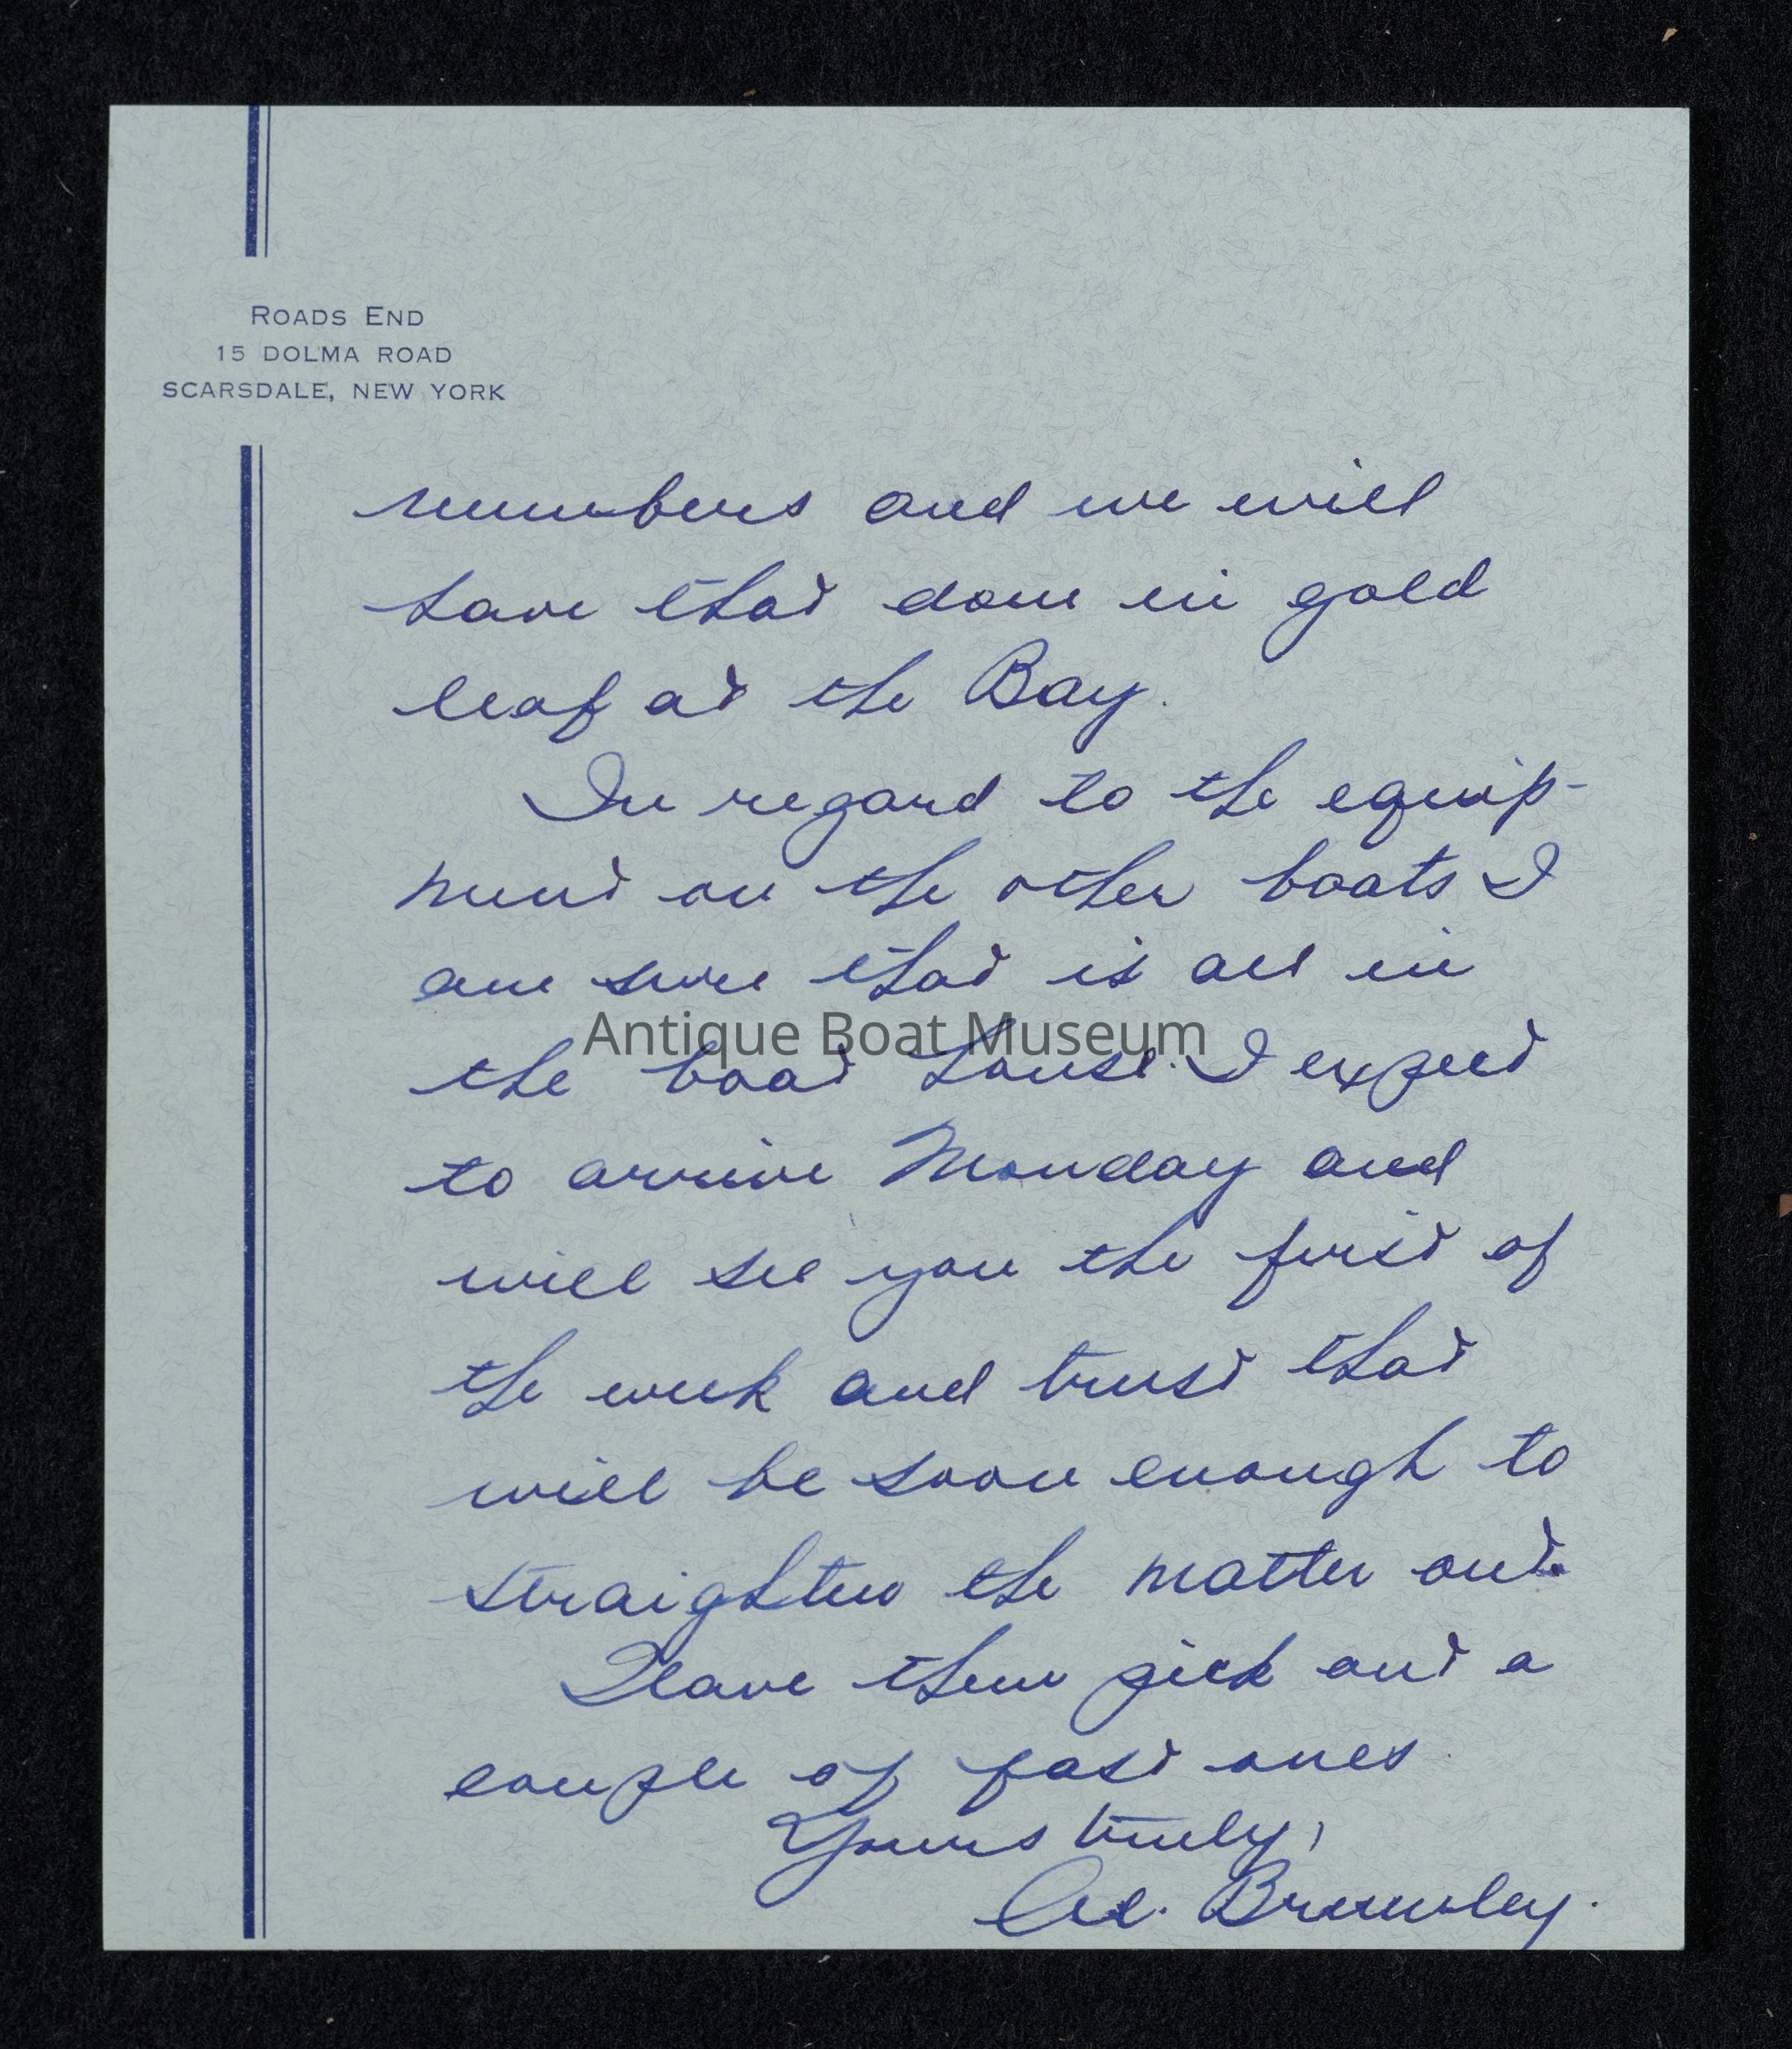 ROADS END
15 DOLMA ROAD
SCARSDALE, NEW YORK
numbers and we will
have that done in gold
leaf at the Bay.
In regard to the equip-
ment on the other boats I
am sure that is all in
Antique Boat Museum
the boat house. I expect
to arrive Monday and
will see you the first of
the week and trust that
will be soon enough to
straighten the matter out.
Have them pick out a
couple of fast ones.
Yours truly,
Al.